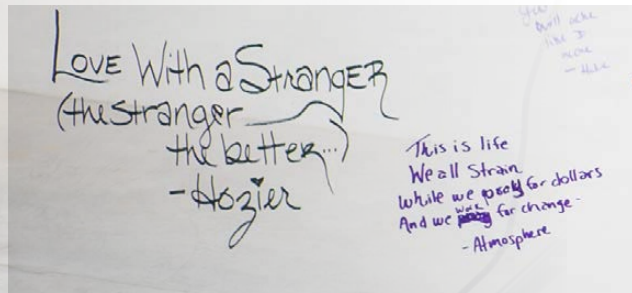 Love With a Stranger
(the stranger
the better...)
-Hozier
This is life
We all Strain
While we pray for dollars
And we work for change-
-Atmosphere
You
like I